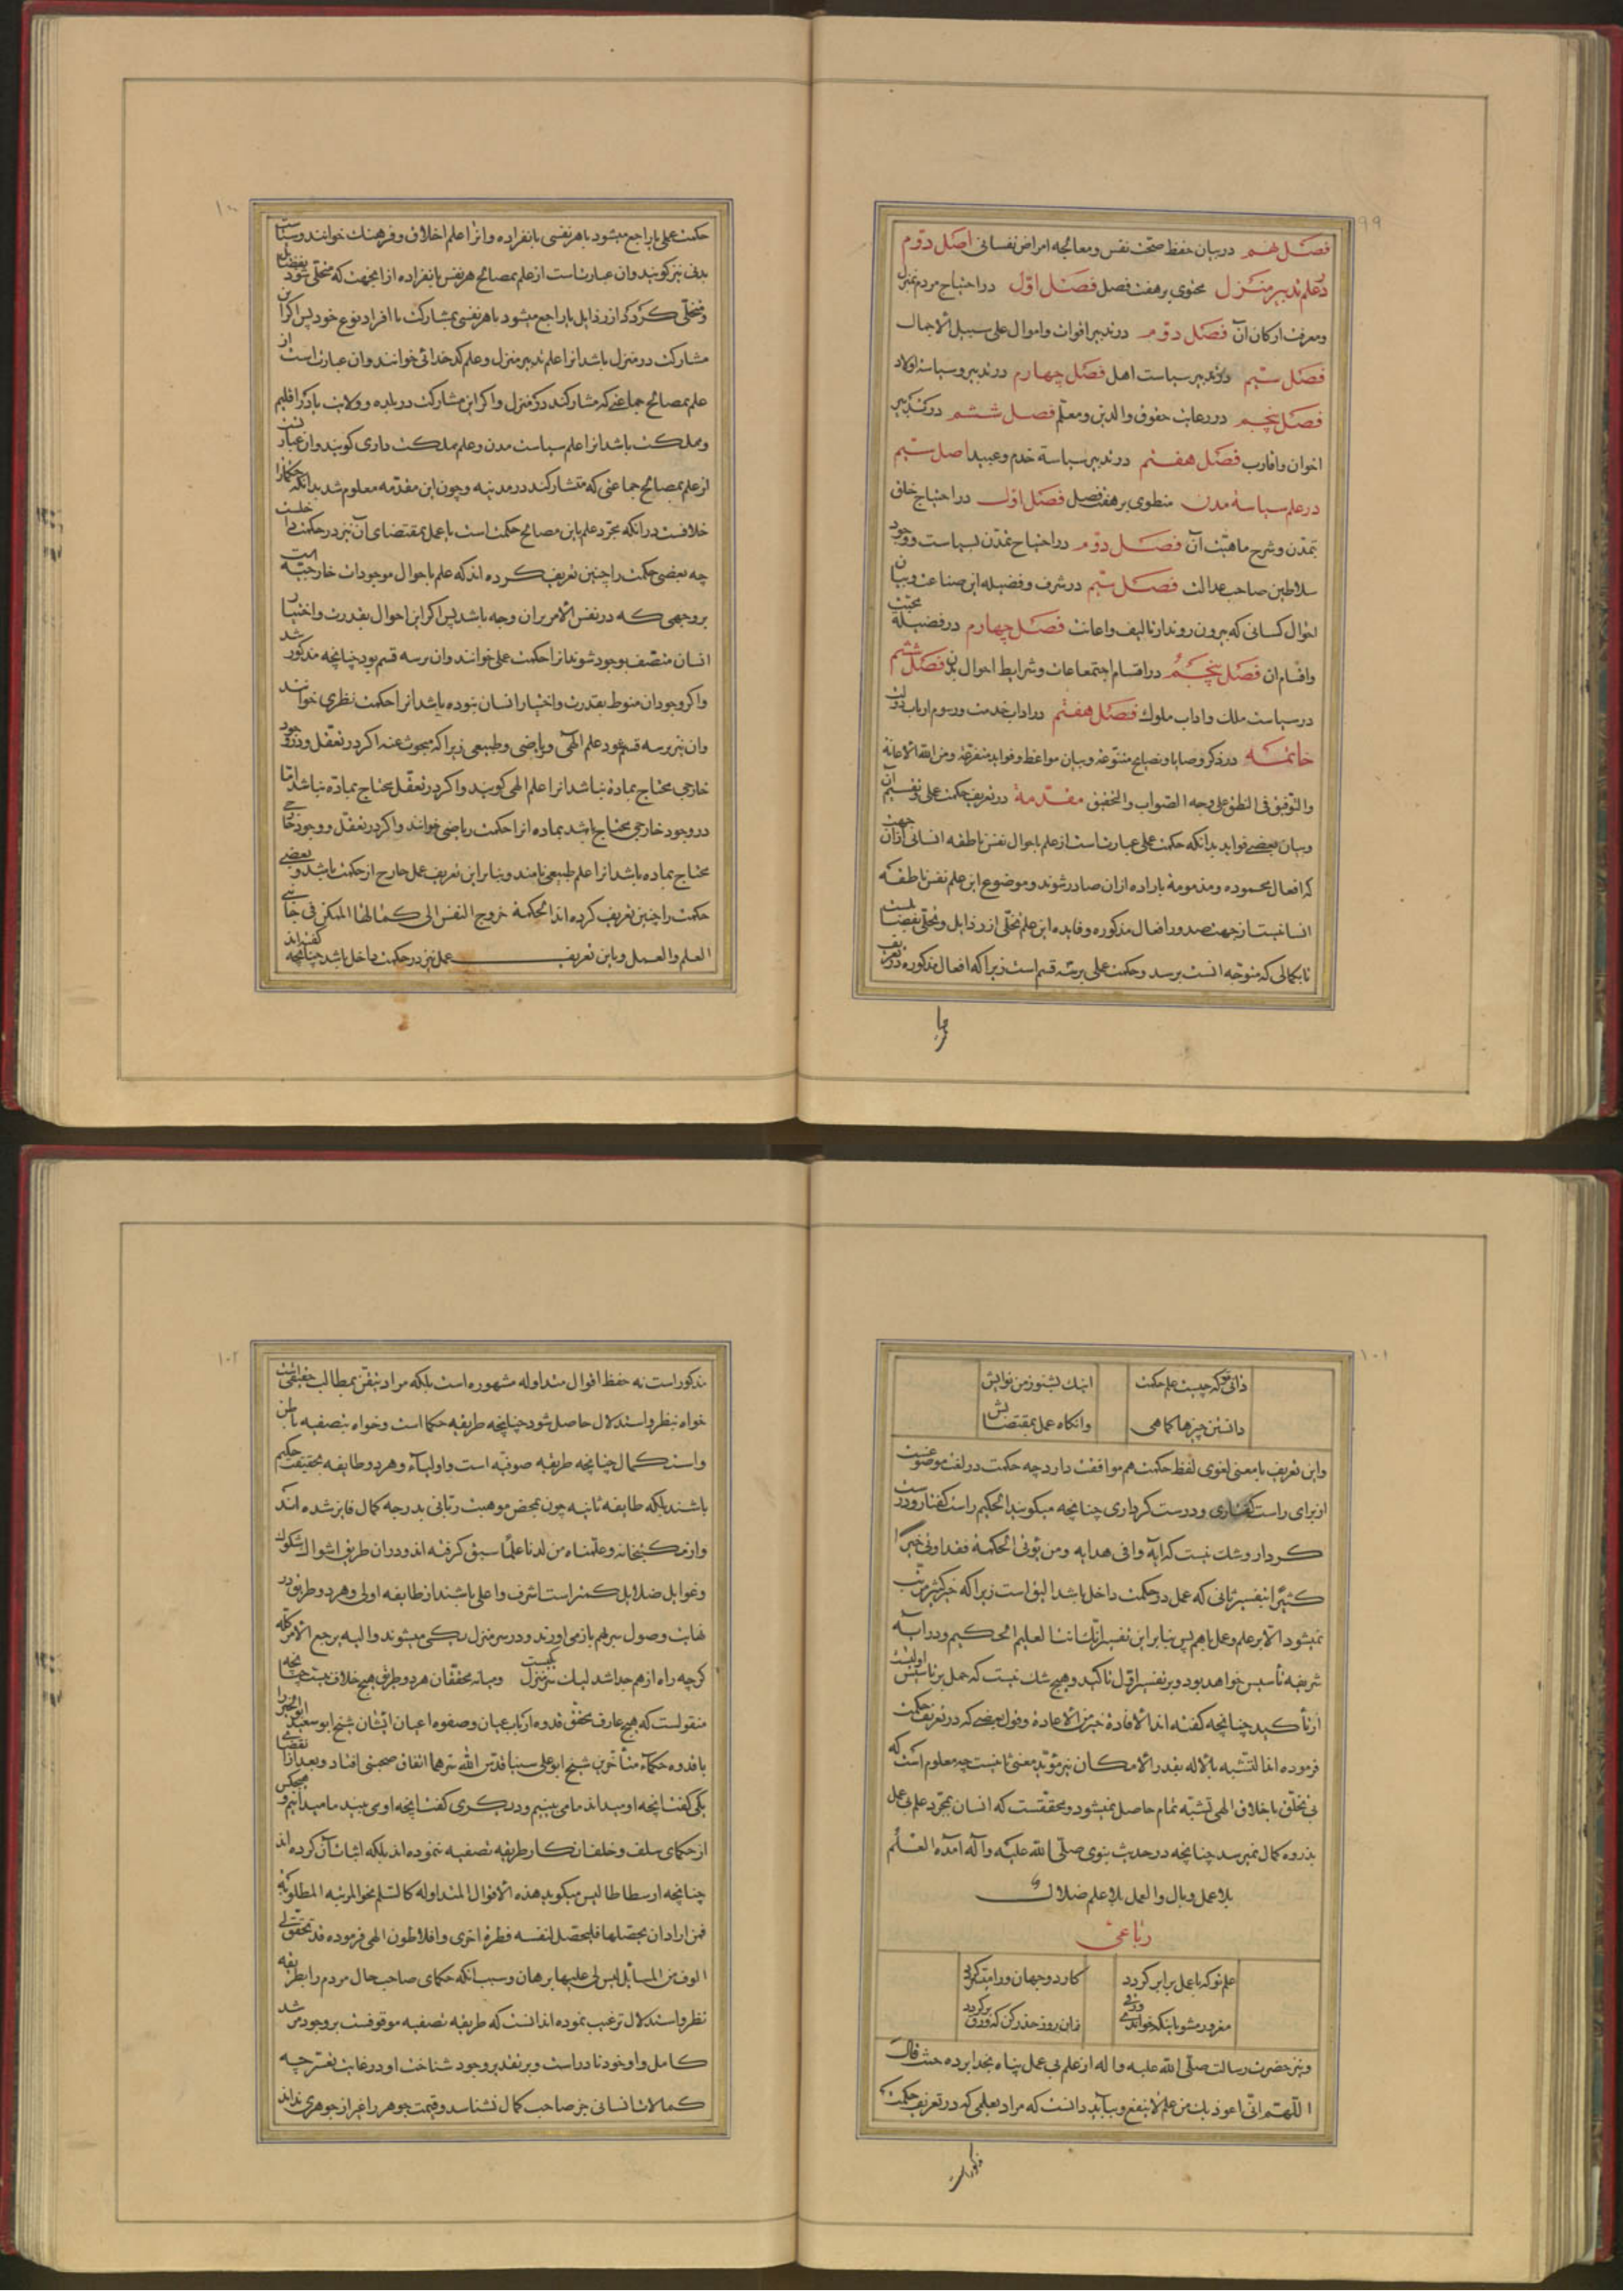 ۹۹
فصل نهم در بیان حفظ صحّت نفس و معالجه امراض نفسانی اصل دوّم
در علم تدبیر منزل محتوی بر هفت فصل فصل اوّل در احتیاج مردم بمنزل
و معرفت ارکان آن فصل دوّم در تدبیر اقوات و اموال علی سبیل الاجمال
فصل سیّم در تدبیر سیاست اهل فصل چهارم در تدبیر و سیاسة اولاد
فصل پنجم در رعایت حقوق والدین و معلّم فصل ششم در تدبیر
اخوان و اقارب فصل هفتم در تدبیر سیاسة خدم و عبید اصل سیّم
در علم سیاسة مدن منطوی بر هفت فصل فصل اوّل در احتیاج خلق
بتمدّن و شرح ماهیّت آن فصل دوّم در احتیاج تمدّن بسیاست و وجود
سلاطین صاحب عدالت فصل سیّم در شرف و فضیله این صناعت و بیان
احوال کسانی که بیرون روند از تالیف و اعانت فصل چهارم در فضیلة محبّت
و اقسام ان فصل پنجم در اقسام اجتماعات و شرایط احوال مدن فصل ششم
در سیاست ملک و اداب ملوک فصل هفتم در اداب خدمت و رسوم ارباب دولت
خاتمه در ذکر وصایا و نصایح متنوّعه و بیان مواعظ و فواید متفرّقه و من الله الاعانة
والتّوفیق فی النطق علی وجه الصّواب والتحقیق مقدّمة در تعریف حکمت عملی و تقسیم آن
و بیان بعضی فواید بدانکه حکمت عملی عبارتست از علم باحوال نفس ناطقه انسانی از ان جهت
که افعال محموده و مذمومه باراده ازان صادر شوند و موضوع این علم نفس ناطقه
انسانیست از جهت صدور افعال مذکوره و فایده این علم تخلّی از رذایل و تحلّی بفضایلست
تا بکمالی که متوجّه انست برسد و حکمت عملی بر سه قسم است زیرا که افعال مذکوره در تعریف
۱۰۰
حکمت عملی یا راجع میشود باهر نفسی بانفراده و انرا علم اخلاق و فرهنگ خوانند و سیاست
بدنی نیز کویند و ان عبارتست از علم بمصالح هر نفس بانفراده از انجهت که متحلّی شود بفضایل
و متخلّی کردد از رذایل یا راجع میشود باهر نفسی بمشارکت با افراد نوع خود پس اکر این
مشارکت در منزل باشد انرا علم تدبیر منزل و علم کدخدائی خوانند و ان عبارت است از
علم بمصالح جماعتی که مشارکند در منزل و اکر این مشارکت در بلده و ولایت یا در اقلیم
و مملکت باشد انرا علم سیاست مدن و علم مملکت داری کویند و ان عبارتست
از علم بمصالح جماعتی که متشارکند در مدینه و چون این مقدّمه معلوم شد بدانکه حکما را
خلافست در انکه مجرّد علم باین مصالح حکمت است یا عمل بمقتضای آن نیز در حکمت داخلست
چه بعضی حکمت را چنین تعریف کرده اند که علم باحوال موجودات خارجیّه است
بر وجهی که در نفس الامر بران وجه باشد پس اکر این احوال بقدرت و اختیار
انسان متّصف بوجود شوند انرا حکمت عملی خوانند و ان بر سه قسم بود چنانچه مذکور شد
و اکر وجودان منوط بقدرت و اختیار انسان نبوده باشد انرا حکمت نظری خوانند
و ان نیز بر سه قسم بود علم الهی و ریاضی و طبیعی زیرا که مبحوث عنه اکر در تعقّل و در وجود
خارجی محتاج بمادة نباشد انرا علم الهی کویند و اکر در تعقّل محتاج بماده نباشد امّا
در وجود خارجی محتاج باشد بماده انرا حکمت ریاضی خوانند و اکر در تعقّل و وجود خارجی
محتاج بماده باشد انرا علم طبیعی نامند و بنابر این تعریف عمل خارج از حکمت باشد و بعضی
حکمت را چنین تعریف کرده اند الحکمة خروج النفس الی کمالها الممکن فی جانبی
العلم والعمل و باین تعریف عمل نیز در حکمت داخل باشد چنانچه کفته اند
۱۰۱
دانی تو که چیست علم حکمت اینک بشنو ز من نوایش
دانستن چیزها کماهی وانکاه عمل بمقتضایش
و این تعریف با معنی لغوی لفظ حکمت هم موافقت دارد چه حکمت در لغت موضوعست
از برای راست کفتاری و درست کرداری چنانچه میکویند الحکیم راست کفتار و درست
کردار و شک نیست که آیه وافی هدایه و من یؤتی الحکمة فقد اوتی خیرًا
کثیرًا بتفسیر ثانی که عمل در حکمت داخل باشد الیق است زیرا که خیر کثیر مرتّب
نمیشود الا بر علم و عمل باهم پس بنابر این تفسیر انّک انت العلیم الحکیم در آیه
شریفه تأسیس خواهد بود و بر تفسیر اوّل تاکید و هیچ شک نیست که حمل بر تاسیس اولیست
از تأکید چنانچه کفته اند الافادة خیر من الاعادة و قول بعضی که در تعریف حکمت
فرموده اند التشبّه بالاله بقدر الامکان نیز مؤیّد معنی ثانیست چه معلوم است که
بی تخلّق باخلاق الهی تشبّه تمام حاصل نمیشود و محقّقست که انسان بمجرّد علم بی عمل
بذروه کمال نمیرسد چنانچه در حدیث نبوی صلّی الله علیه و آله آمده العلم
بلا عمل وبال والعمل بلا علم ضلال
رباعی
علم تو که با عمل برابر کردد کار دو جهان ورا میسّر کردد
مغرور مشو باینکه خواندی ورقی زان روز حذر کن که ورق بر کردد
و نیز حضرت رسالت صلّی الله علیه و اله از علم بی عمل پناه بخدا برده حیث قال
اللّهمّ انّی اعوذ بک من علم لا ینفع و بباید دانست که مراد بعلمی که در تعریف حکمت
مذکور است
۱۰۲
مذکور است نه حفظ اقوال متداوله مشهوره است بلکه مراد تیقّن بمطالب حقیقی است
خواه بنظر و استدلال حاصل شود چنانچه طریقه حکما است و خواه بتصفیه باطن
و استکمال چنانچه طریقه صوفیّه است و اولیاء و هر دو طایفه بحقیقت حکیم
باشند بلکه طایفه ثانیه چون بمحض موهبت ربّانی بدرجه کمال فایز شده اند
و از مکتبخانه و علّمناه من لدنا علمًا سبق کرفته اند و دران طریق اشواک شکوک
و غوایل ضلایل کمتر است اشرف و اعلی باشند از طایفه اولی و هر دو طریق در
نهایت وصول سر بهم باز می اورند و در سر منزل یکی میشوند و الیه یرجع الامر کلّه
کرچه راه از هم جدا شد لیک سر منزل یکیست و میانه محقّقان هر دو طریق هیچ خلاف نیست چنانچه
منقولست که هیچ عارف محقّق قدوه ارباب عیان و صفوه اعیان ایشان شیخ ابو سعید ابو الخیر را
با قدوه حکماء متأخّرین شیخ ابو علی سینا قدّس الله سرّهما اتفاق صحبتی افتاد و بعد از انقضای
یکی کفت انچه او میداند ما می بینیم و دیکری کفت انچه او می بیند ما میدانیم و هیچکس
از حکمای سلف و خلف انکار طریقه تصفیه ننموده اند بلکه اثبات آن کرده اند
چنانچه ارسطاطالیس میکوید هذه الاقوال المتداوله کالسّلم نحو المرتبه المطلوبة
فمن اراد ان یحصّلها فلیحصّل لنفسه فطرة اخری و افلاطون الهی فرموده قد تحقّق لی
الوف من المسائل لیس لی علیها برهان و سبب انکه حکمای صاحب حال مردم را بطریقه
نظر و استدلال ترغیب نموده اند انست که طریقه تصفیه موقوفست بر وجود مرشد
کامل و او خود نادر است و بر تقدیر وجود شناخت او در غایت تعسّر چه
کمالات انسانی جز صاحب کمال نشناسد و قیمت جوهر را غیر از جوهری نداند